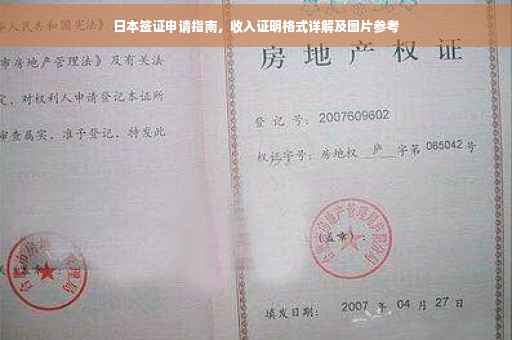 日本签证申请指南，收入证明格式详解及图片参考
人民共和国宪法》
市房地产管理法》及有关法
对权利人申请登记本证所
审查属实，准予登记，特发此
房地产权证
登记号：2007609602
权证字号：房地权 庐 字第 085042 号
(盖章)：
填发日期：2007 年 04 月 27 日